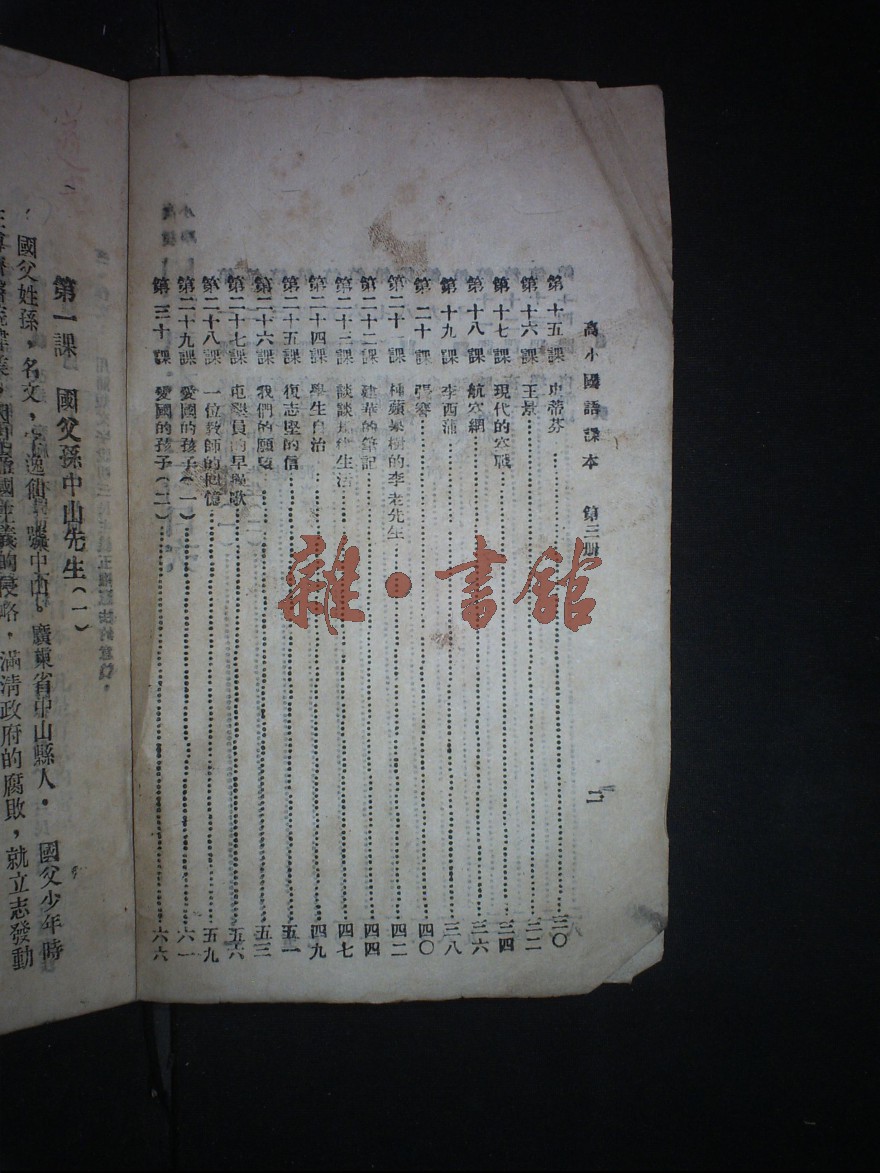 高小國語課本　第三册
二
第十五課　史蒂芬……三〇
第十六課　王景……三二
第十七課　現代的空戰……三四
第十八課　航空網……三六
第十九課　李西蒲……三八
第二十課　張騫……四〇
第二十一課　種蘋果樹的李老先生……四二
第二十二課　建華的筆記……四四
第二十三課　談談生活……四七
第二十四課　學生自治……四九
第二十五課　復志堅的信……五一
第二十六課　我們的願……五三
第二十七課　屯墾員的早操歌……五六
第二十八課　一位教師的回憶……五九
第二十九課　愛國的孩子（一）……六一
第三十課　愛國的孩子（二）……六六
雜·書館
第一課　國父孫中山先生（一）
國父姓孫，名文，字逸仙，號中山。廣東省中山縣人。國父少年時
國主義的侵略，滿清政府的腐敗，就立志發動